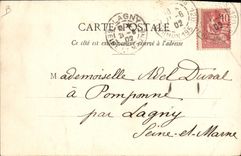 CARTE POSTALE
Ce côté est exclusivement réservé à l'adresse
LAGNY
02
10
Mademoiselle Adel Duval
à Pomponne
par Lagny
Seine-et-Marne